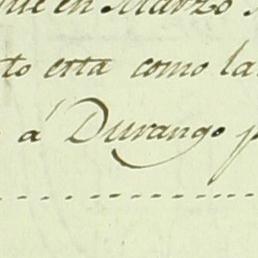 en Marzo
esta como la
á Durango